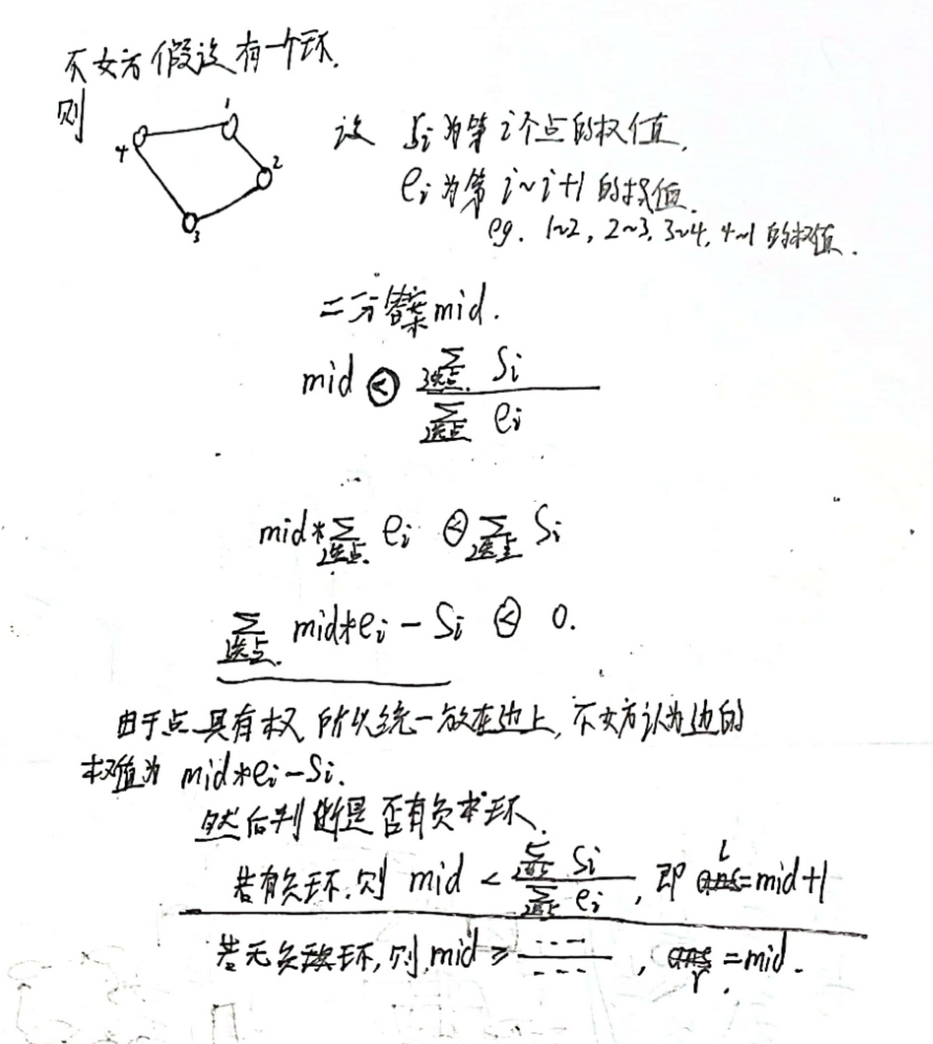 不妨假设有一个环.
则
1
2
3
4
设 Si 为第 i 个点的权值.
ei 为第 i~i+1 的权值.
eg. 1~2, 2~3, 3~4, 4~1 的权值.
二分答案mid.
mid < ∑选点 Si / ∑选点 ei
mid*∑选点 ei < ∑选点 Si
∑选点. mid*ei - Si < 0.
由于点具有权 所以统一放在边上, 不妨认为边的
权值为 mid*ei-Si.
然后判断是否有负环.
若有负环.则 mid < ∑选点 Si / ∑选点 ei , 即 l=mid+1
若无负环, 则 mid ≥ --- / --- , r=mid.